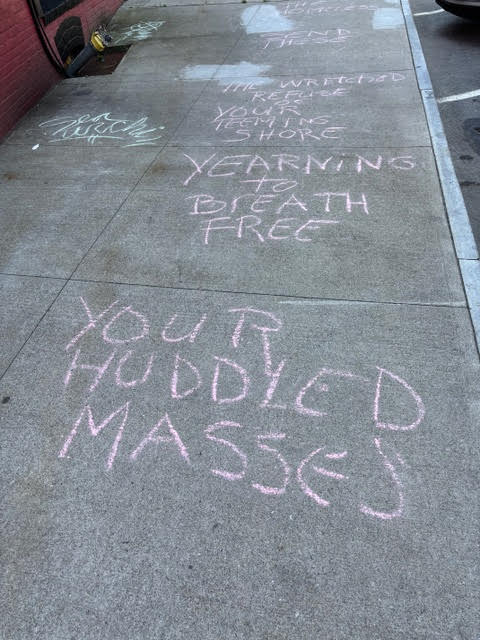 YOUR
HUDDLED
MASSES
YEARNING
TO
BREATH
FREE
THE WRETCHED
REFUSE
YOUR
TEEMING
SHORE
SEND
THESE